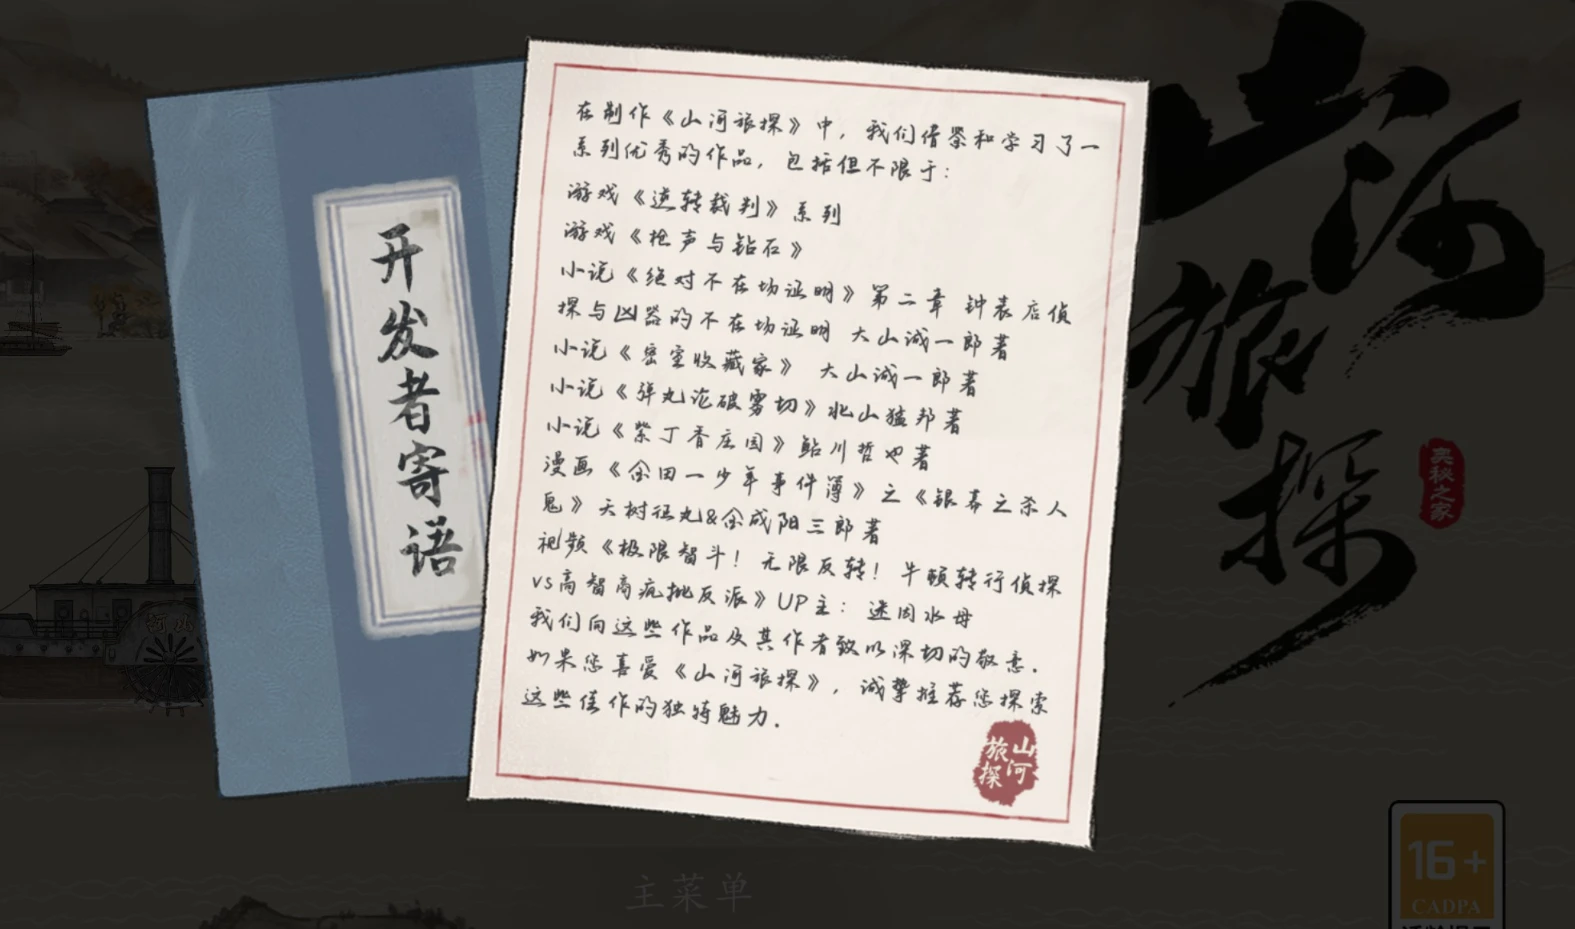 开发者寄语
在制作《山河旅探》中，我们借鉴和学习了一
系列优秀的作品，包括但不限于：
游戏《逆转裁判》系列
游戏《枪声与钻石》
小说《绝对不在场证明》第二章 钟表店侦
探与凶器的不在场证明 大山诚一郎著
小说《密室收藏家》 大山诚一郎著
小说《弹丸论破雾切》北山猛邦著
小说《紫丁香庄园》鲇川哲也著
漫画《金田一少年事件簿》之《银幕之杀人
鬼》天树征丸&金成阳三郎著
视频《极限智斗！无限反转！牛顿转行侦探
vs高智商疯批反派》UP主：迷因水母
我们向这些作品及其作者致以深切的敬意.
如果您喜爱《山河旅探》，诚挚推荐您探索
这些佳作的独特魅力.
山河
旅探
山河旅探
奥秘之家
河北
主菜单
16+
CADPA
适龄提示